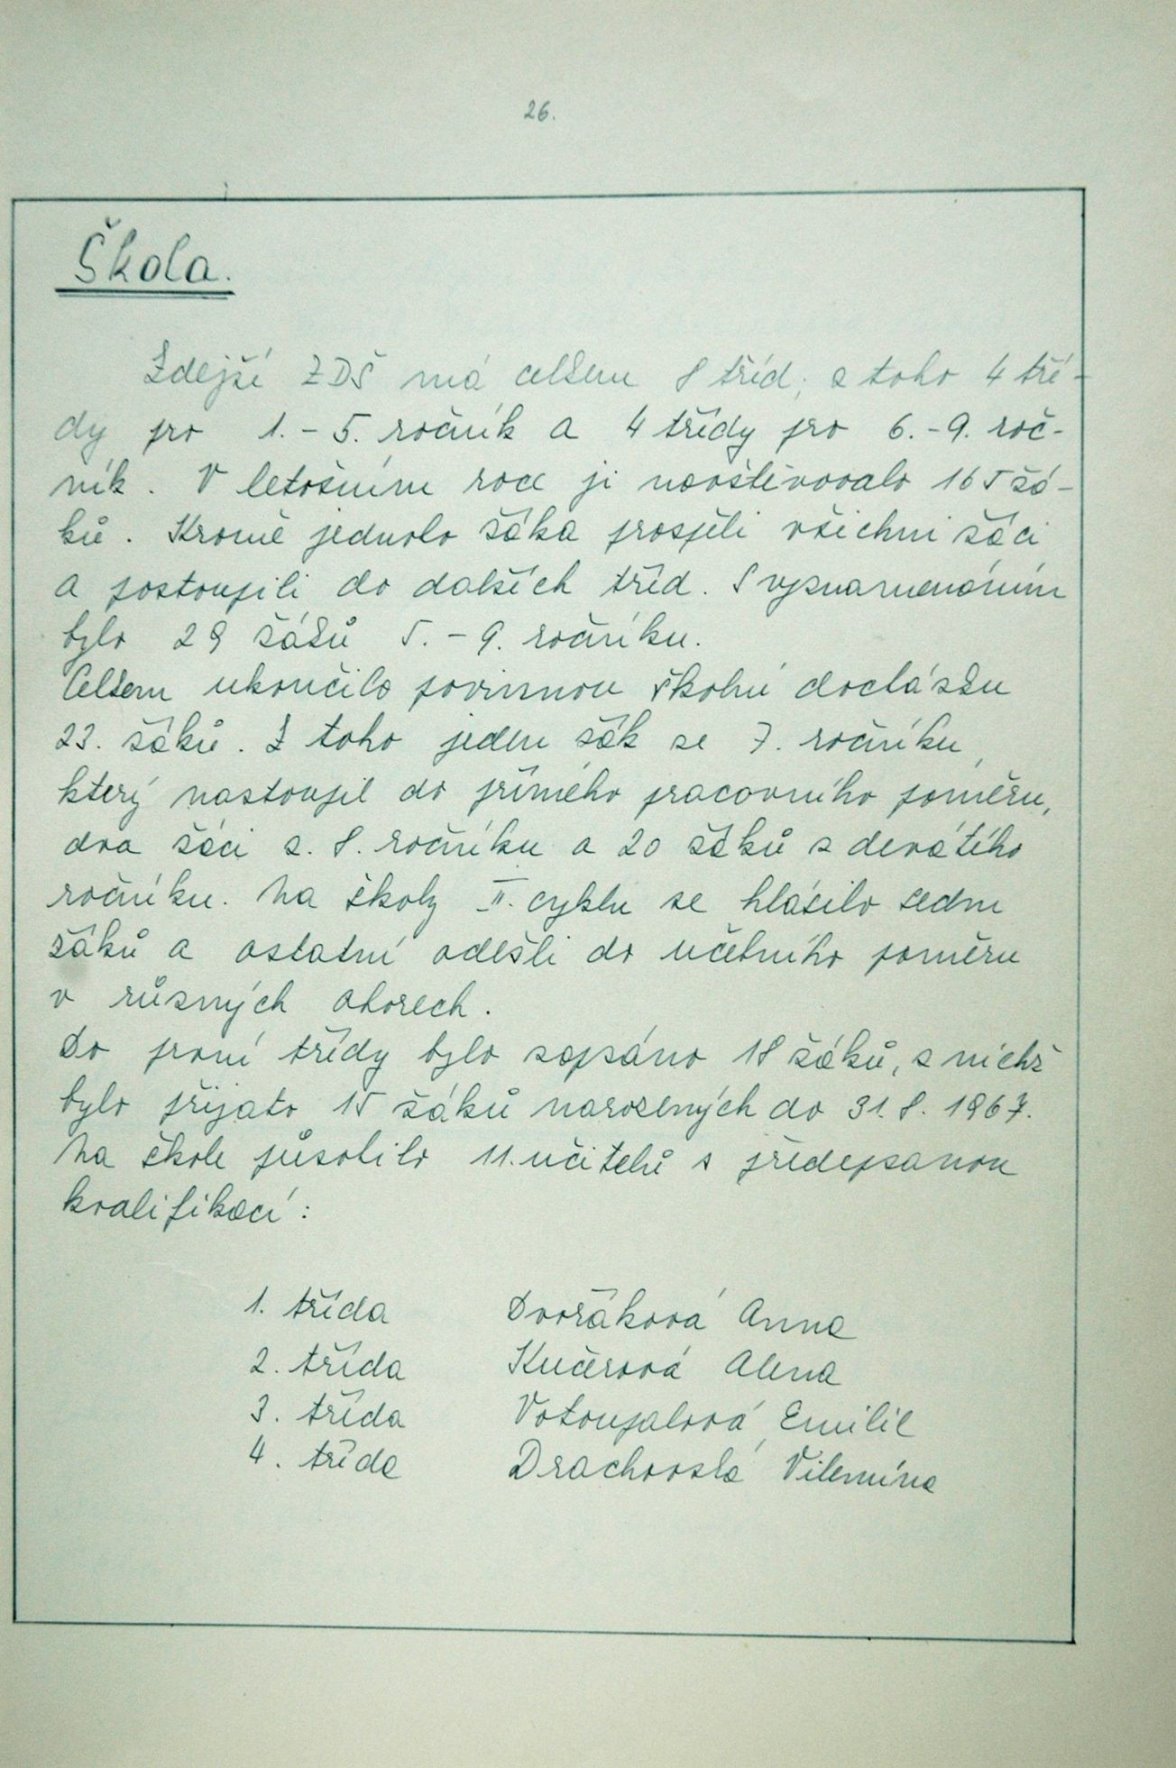 26.
Škola.
Zdejší ZDŠ má celkem 8 tříd, z toho 4 tří-
dy pro 1. - 5. ročník a 4 třídy pro 6. - 9. roč-
ník. V letošním roce ji navštěvovalo 165 žá-
ků. Kromě jednoho žáka prospěli všichni žáci
a postoupili do dalších tříd. S vyznamenáním
bylo 29 žáků 5. - 9. ročníku.
Celkem ukončilo povinnou školní docházku
23. žáků. Z toho jeden žák ze 7. ročníku,
který nastoupil do přímého pracovního poměru,
dva žáci z 8. ročníku a 20 žáků z devátého
ročníku. Na školy II. cyklu se hlásilo sedm
žáků a ostatní odešli do učebního poměru
v různých oborech.
Do první třídy bylo zapsáno 18 žáků, z nichž
bylo přijato 15 žáků narozených do 31. 8. 1967.
Na škole působilo 11. učitelů s předepsanou
kvalifikací:
1. třída Dvořáková Anna
2. třída Kučerová Alena
3. třída Votoupalová Emilie
4. třída Drachovská Vilemína